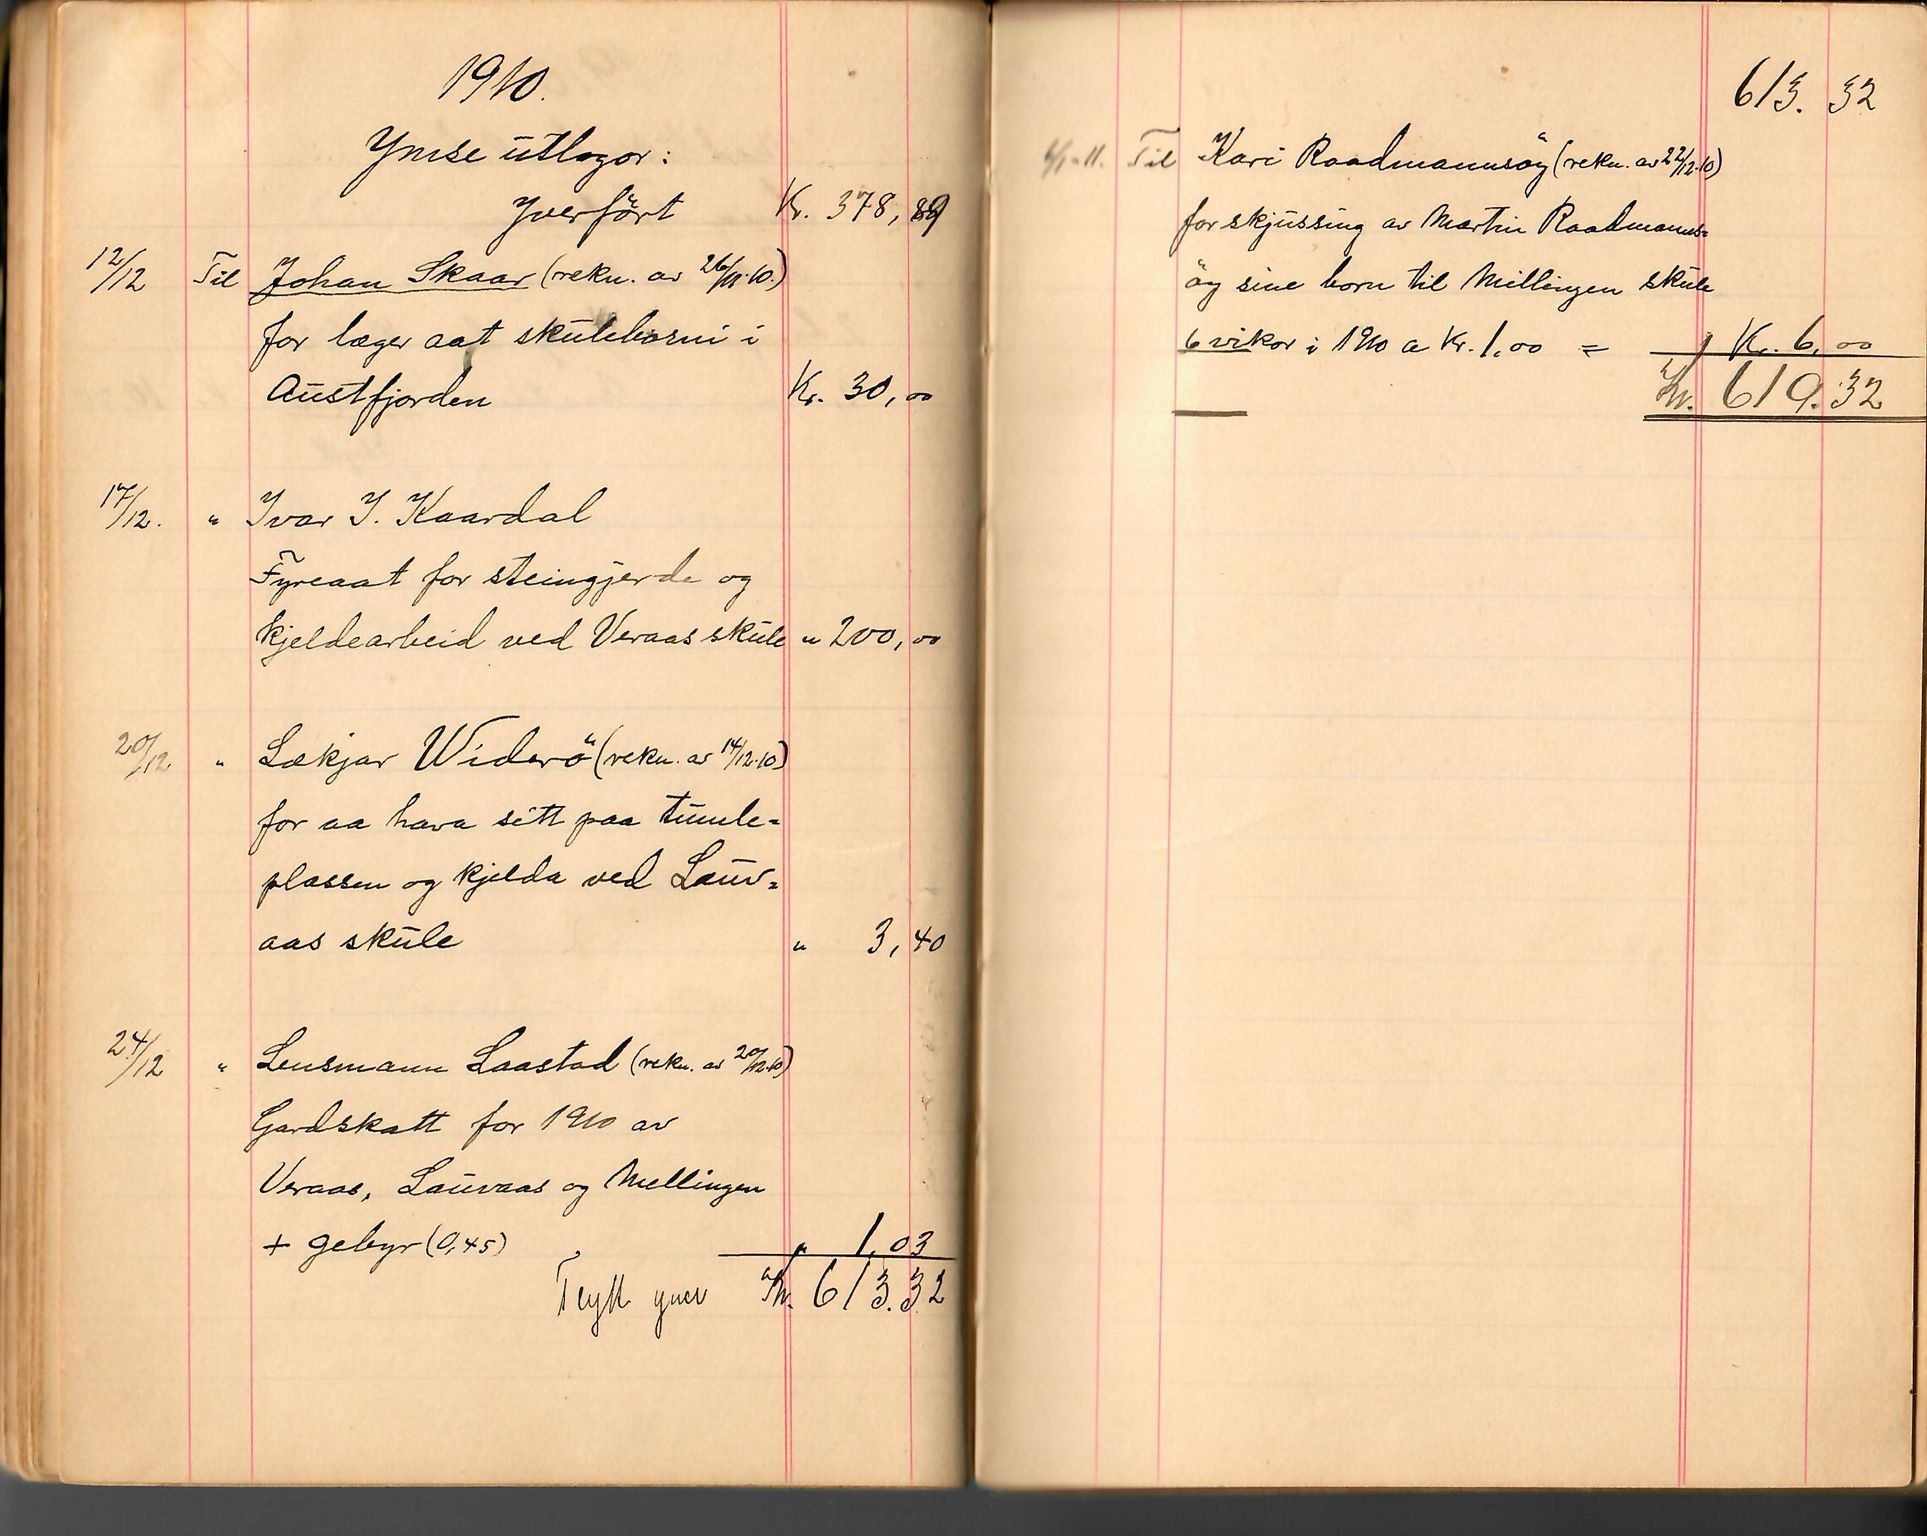 1910.
Ymse utlogor:
Yverfört Kr. 378,89
12/12 Til Johan Skaar (rekn. av 26/11.10.)
for læger aat skuleborni i
Austfjorden Kr. 30,00
17/12. " Ivar I. Kaardal
Fyreaat for steingjerde og
kjeldearbeid ved Veraas skule " 200,00
20/12 " Lækjar Widerö (rekn. av 14/12.10)
for aa hava sétt paa tumle-
plassen og kjelda ved Lauv-
aas skule " 3,40
24/12 " Lensmann Laastad (rekn. av 20/12.10)
Gardskatt for 1910 av
Veraas, Lauvaas og Mellingen
+ gebyr (0,45) " 1,03
Flytt yver Kr. 613.32
613.32
6/1-11. Til Kari Raadmannsöy (rekn. av 22/12.10)
for skjussing av Martin Raadmanns-
öy sine born til Millingen skule
6 vikor i 1910 a Kr. 1,00 = Kr. 6,00
Kr. 619.32